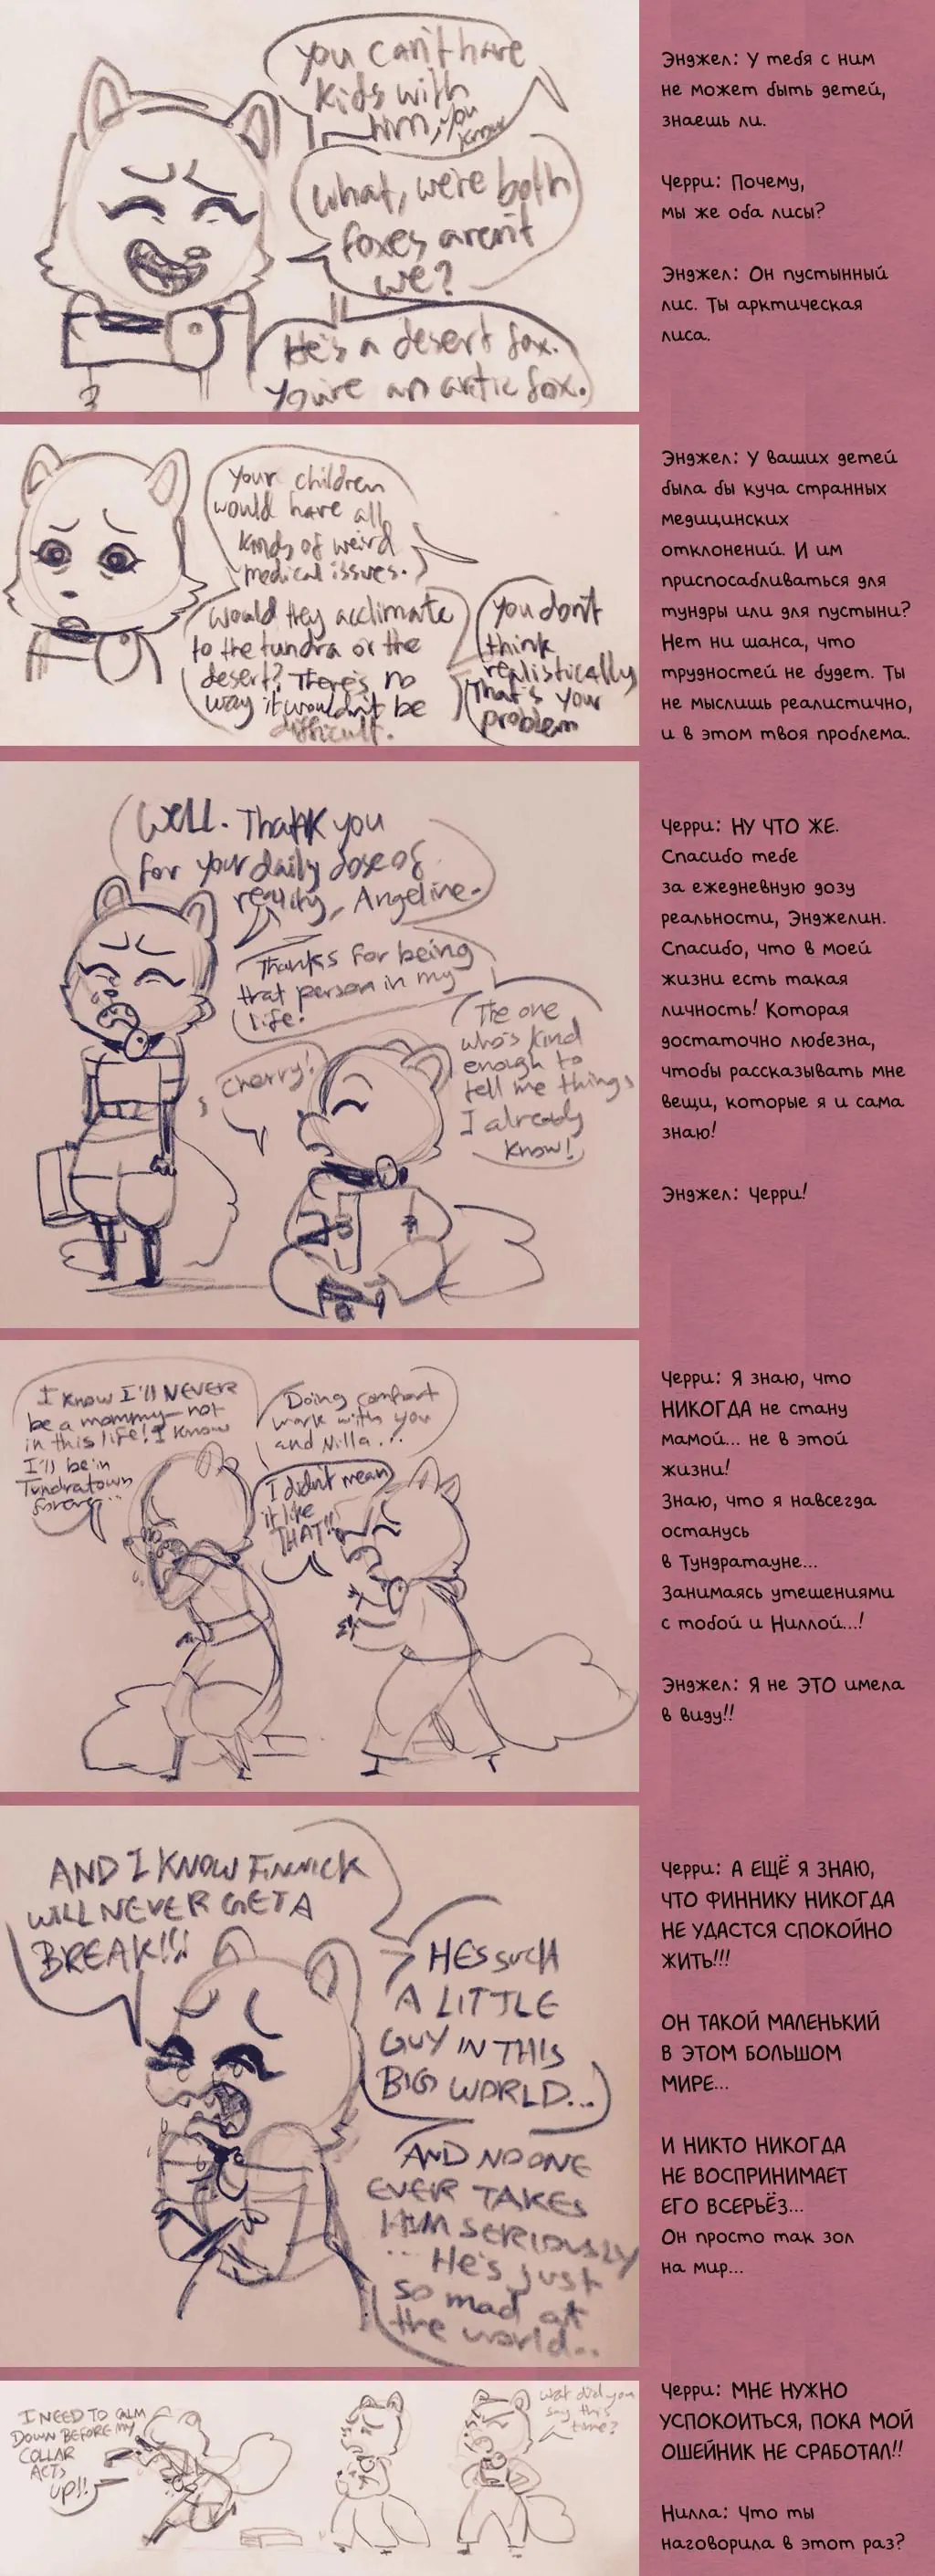 you can't have
kids with
him, you
know
What, we're both
foxes aren't
we?
He's a desert fox.
You're an artic fox.
Энджел: У тебя с ним
не может быть детей,
знаешь ли.
Черри: Почему,
мы же оба лисы?
Энджел: Он пустынный
лис. Ты арктическая
лиса.
Your children
would have all
kinds of weird
medical issues.
Would they acclimate
to the tundra or the
desert? There's no
way it wouldn't be
difficult.
you don't
think
realistically
That's your
problem
Энджел: У ваших детей
была бы куча странных
медицинских
отклонений. И им
приспосабливаться для
тундры или для пустыни?
Нет ни шанса, что
трудностей не будет. Ты
не мыслишь реалистично,
и в этом твоя проблема.
WELL. Thank you
for your daily dose of
reality, Angeline.
Thanks for being
that person in my
life!
The one
who's kind
enough to
tell me things
I already
know!
Cherry!
Черри: НУ ЧТО ЖЕ.
Спасибо тебе
за ежедневную дозу
реальности, Энджелин.
Спасибо, что в моей
жизни есть такая
личность! Которая
достаточно любезна,
чтобы рассказывать мне
вещи, которые я и сама
знаю!
Энджел: Черри!
I know I'll NEVER
be a mommy—not
in this life! I know
I'll be in
Tundratown
forever...
Doing comfort
work with you
and Nilla...!
I didn't mean
it like
THAT!!
Черри: Я знаю, что
НИКОГДА не стану
мамой... не в этой
жизни!
Знаю, что я навсегда
останусь
в Тундратауне...
Занимаясь утешениями
с тобой и Ниллой...!
Энджел: Я не ЭТО имела
в виду!!
AND I KNOW FINNICK
WILL NEVER GET A
BREAK!!!
HE'S SUCH
A LITTLE
GUY IN THIS
BIG WORLD...
AND NO ONE
EVER TAKES
HIM SERIOUSLY
... He's just
so mad at
the world...
Черри: А ЕЩЁ Я ЗНАЮ,
ЧТО ФИННИКУ НИКОГДА
НЕ УДАСТСЯ СПОКОЙНО
ЖИТЬ!!!
ОН ТАКОЙ МАЛЕНЬКИЙ
В ЭТОМ БОЛЬШОМ
МИРЕ...
И НИКТО НИКОГДА
НЕ ВОСПРИНИМАЕТ
ЕГО ВСЕРЬЁЗ...
Он просто так зол
на мир...
I NEED TO CALM
DOWN BEFORE MY
COLLAR
ACTS
UP!!
Wat did you
say this
time?
Черри: МНЕ НУЖНО
УСПОКОИТЬСЯ, ПОКА МОЙ
ОШЕЙНИК НЕ СРАБОТАЛ!!
Нилла: Что ты
наговорила в этот раз?